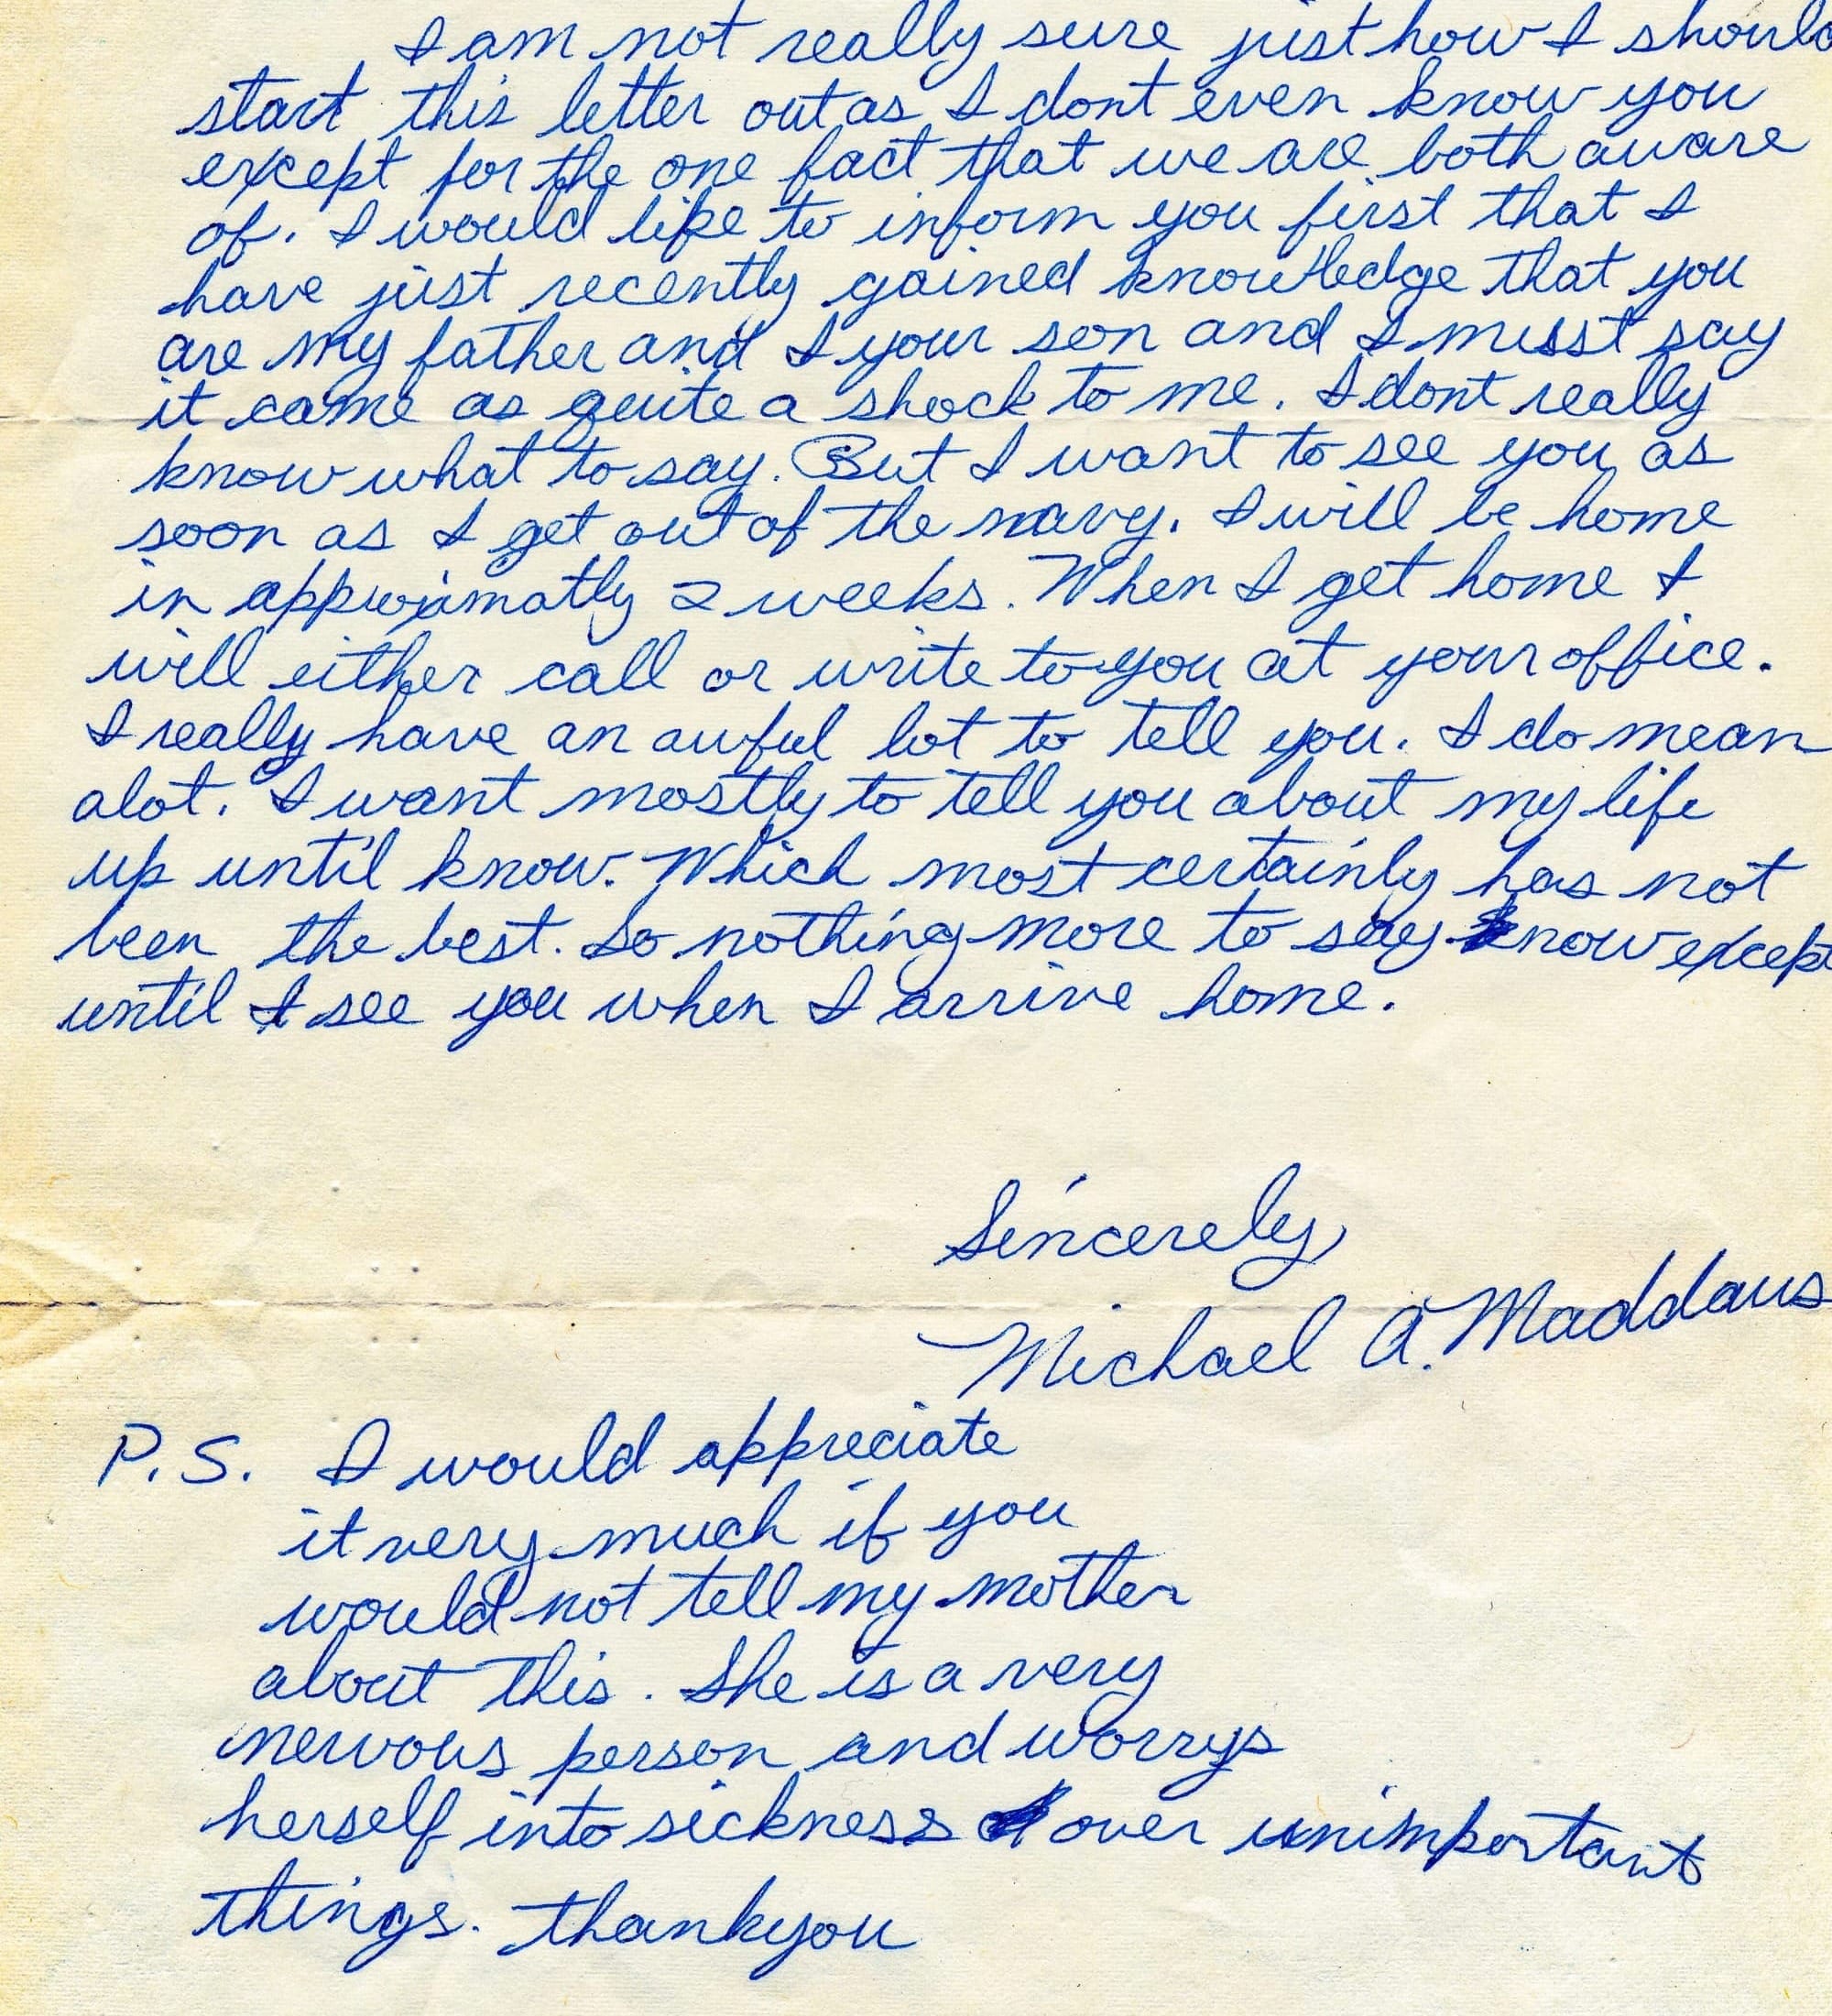 I am not really sure just how I should
start this letter out as I dont even know you
except for the one fact that we are both aware
of. I would like to inform you first that I
have just recently gained knowledge that you
are my father and I your son and I musst say
it came as quite a shock to me. I dont really
know what to say. But I want to see you as
soon as I get out of the navy. I will be home
in approximatly 2 weeks. When I get home I
will either call or write to you at your office.
I really have an awful lot to tell you. I do mean
alot. I want mostly to tell you about my life
up until know. Which most certainly has not
been the best. So nothing more to say now except
until I see you when I arrive home.
Sincerely,
Michael A. Maddaus
P.S. I would appreciate
it very much if you
would not tell my mother
about this. She is a very
nervous person and worrys
herself into sickness over unimportant
things. thankyou